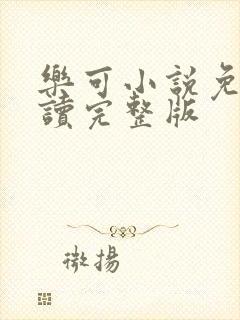 樂可小說免
讀完整版
微揚